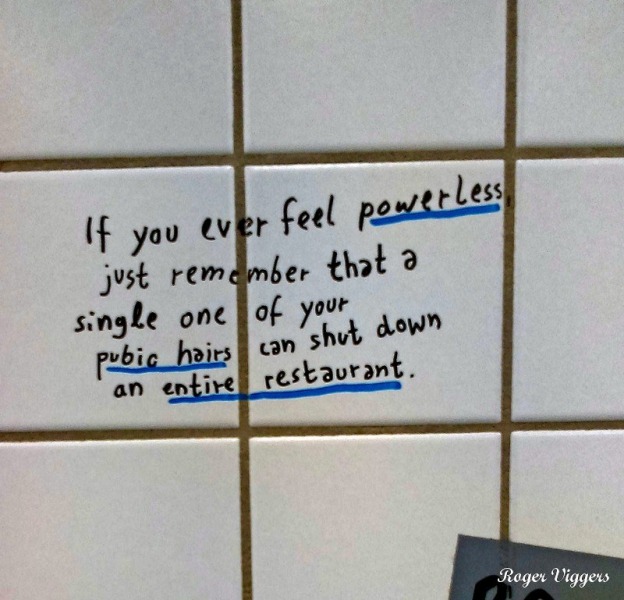 If you ever feel powerless,
just remember that a
single one of your
pubic hairs can shut down
an entire restaurant.
Roger Viggers